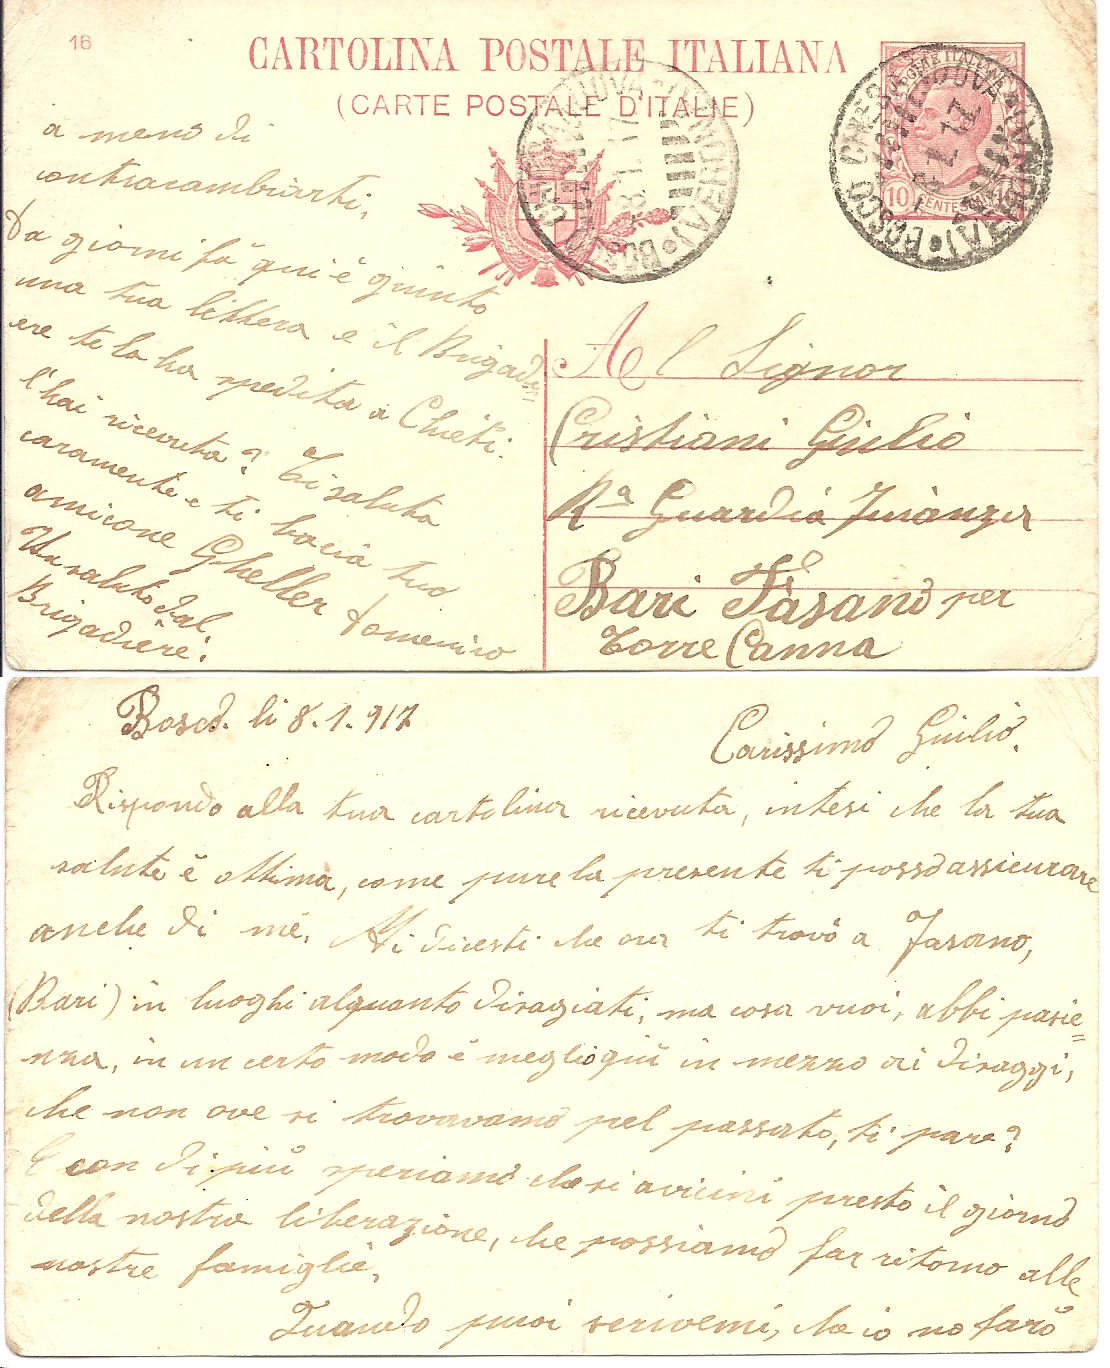 16
CARTOLINA POSTALE ITALIANA
(CARTE POSTALE D'ITALIE)
BOSCO CHIESANUOVA (VERONA)
8.1.17
BOSCO CHIESANUOVA (VERONA)
10 CENTESIMI 10
a meno di
contracambiarti.
Da giorni fà qui è giunto
una tua lettera e il Brigadi=
ere te la ha spedita a Chieti.
l'hai ricevuta? Ti saluta
caramente e ti bacia tuo
amicone Gheller Domenico
Un saluto dal
Brigadiere.
Al Signor
Cristiani Giulio
Rª Guardia Finanza
Bari Fasano per
Torre Canna
Bosco. li 8.1.917
Carissimo Giulio.
Rispondo alla tua cartolina ricevuta, intesi che la tua
salute è ottima, come pure la presente ti posso assicurare
anche di mé. Mi dicesti che ora ti trovo a Fasano,
(Bari) in luoghi alquanto disagiati, ma cosa vuoi, abbi pasie=
nza, in un certo modo è meglio qui in mezzo ai disaggi,
che non ove si trovavamo pel passato, ti pare?
E con di più speriamo che si avicini presto il giorno
della nostra liberazione, che possiamo far ritorno alle
nostre famiglie.
Quando puoi scrivemi, che io no farò